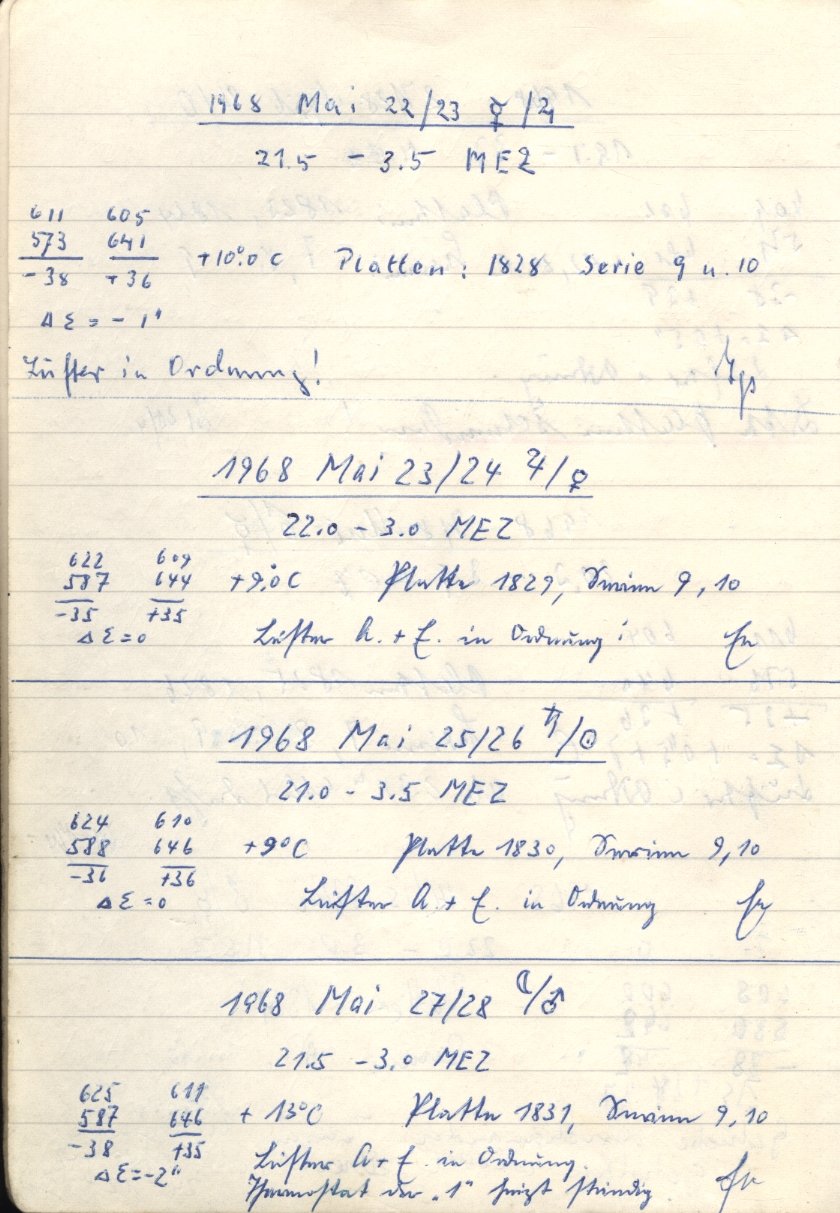 1968 Mai 22/23 ☿/♃
21.5 – 3.5 MEZ
611 605
573 641 +10°.0 C Platten: 1828 Serie 9 u. 10
-38 +36
Δ Σ = - 1"
Lüfter in Ordnung!
1968 Mai 23/24 ♃/♀
22.0 – 3.0 MEZ
622 609
587 644 +9°.0 C Platte 1829, Serien 9, 10
-35 +35
Δ Σ = 0 Lüfter A. + E. in Ordnung!
1968 Mai 25/26 ♄/☉
21.0 – 3.5 MEZ
624 610
588 646 +9°C Platte 1830, Serien 9, 10
-36 +36
Δ Σ = 0 Lüfter A. + E. in Ordnung
1968 Mai 27/28 ☾/♂
21.5 – 3.0 MEZ
625 611
587 646 + 13°C Platte 1831, Serien 9, 10
-38 +35
Δ Σ = -2" Lüfter A + E. in Ordnung.
Thermostat der „1" heizt ständig.